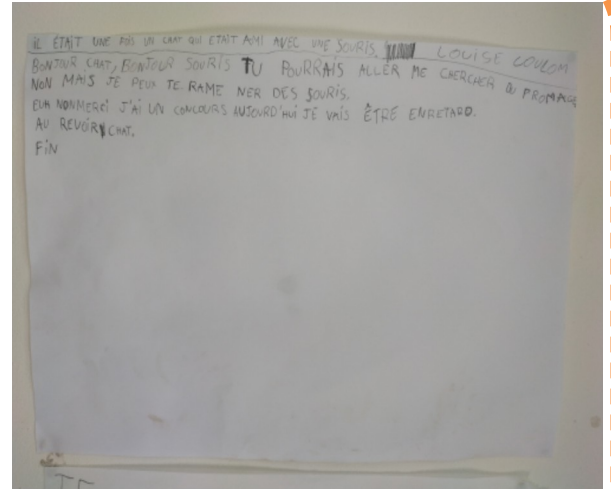 IL ÉTAIT UNE FOIS UN CHAT QUI ETAIT AMI AVEC UNE SOURIS. LOUISE COULOM
BONJOUR CHAT, BONJOUR SOURIS TU POURRAIS ALLER ME CHERCHER DU FROMAGE
NON MAIS JE PEUX TE RAME NER DES SOURIS.
EUH NONMERCI J'AI UN CONCOURS AUJOURD'HUI JE VAIS ÊTRE ENRETARD.
AU REVOIR CHAT.
FIN